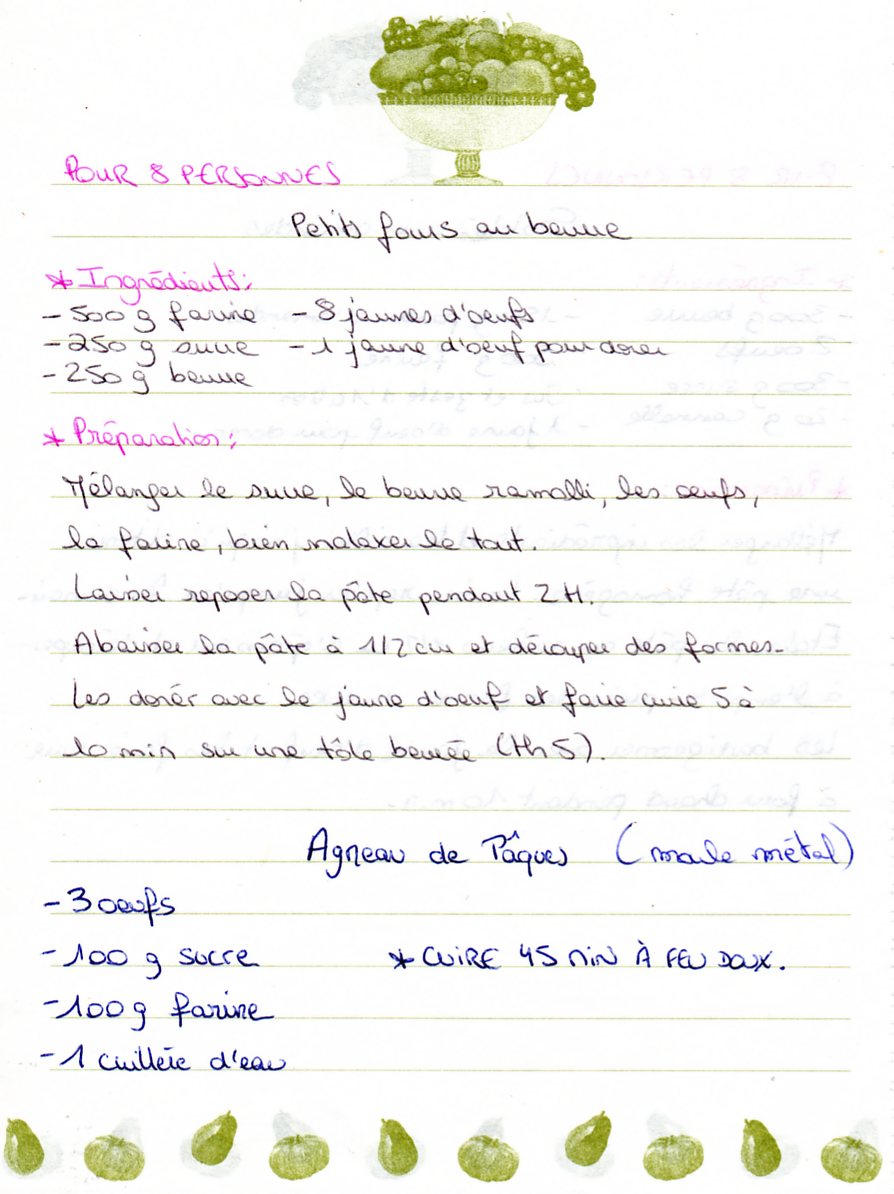 POUR 8 PERSONNES
Petits fours au beurre
* Ingrédients:
- 500 g farine - 8 jaunes d'oeufs
- 250 g sucre - 1 jaune d'oeuf pour dorer
- 250 g beurre
* Préparation:
Mélanger le sucre, le beurre ramolli, les oeufs,
la farine, bien malaxer le tout.
Laisser reposer la pâte pendant 2H.
Abaisser la pâte à 1/2 cm et découper des formes.
Les dorer avec le jaune d'oeuf et faire cuire 5 à
10 min sur une tôle beurrée (th 5).
Agneau de Pâques (moule métal)
- 3 oeufs
- 100 g sucre * CUIRE 45 MIN À FEU DOUX.
- 100 g farine
- 1 cuillère d'eau